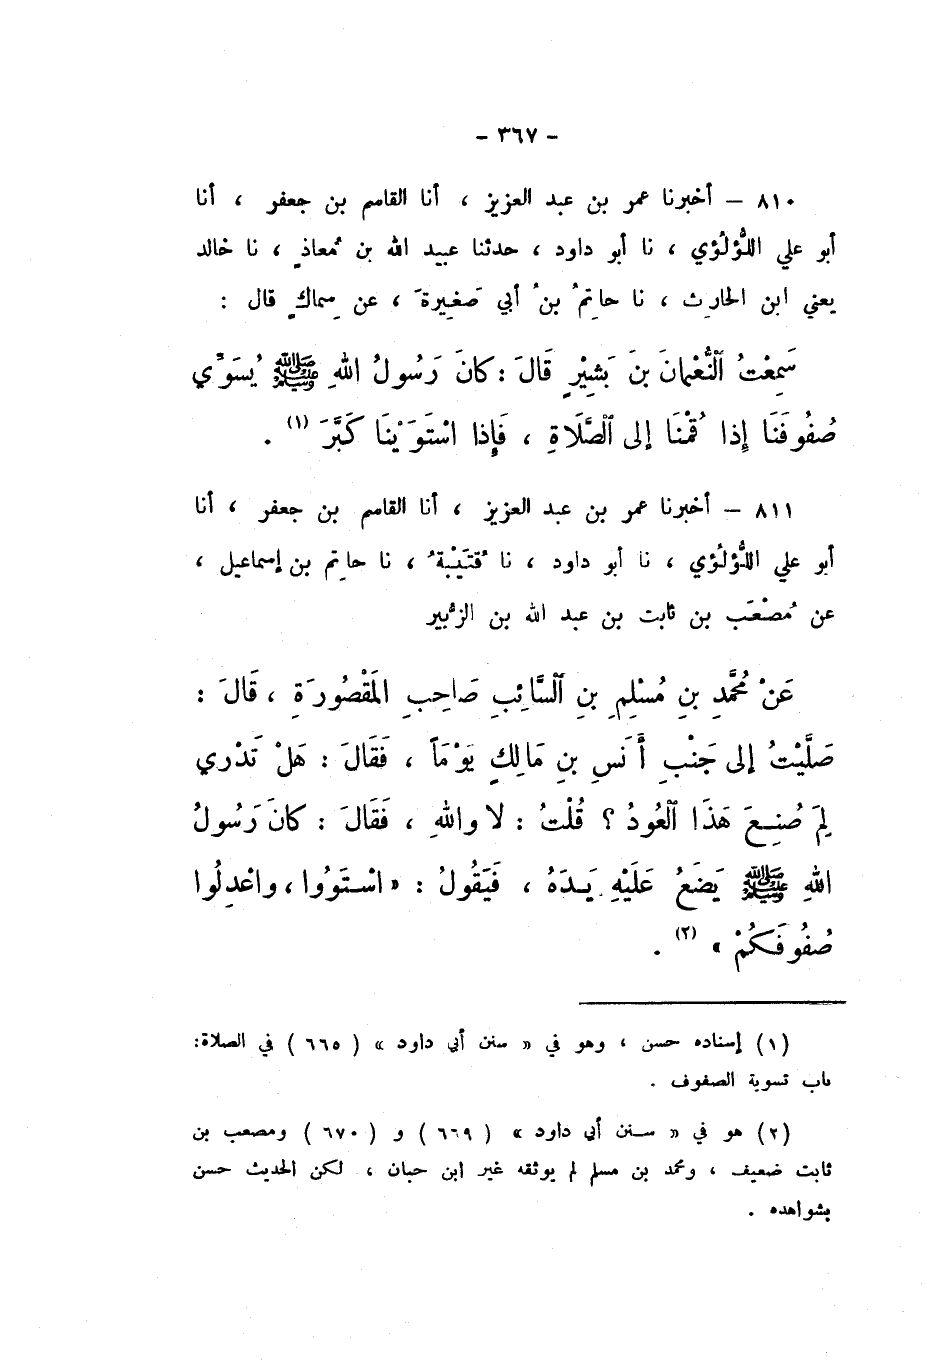 - ٣٦٧ -
٨١٠ - أخبرنا عمر بن عبد العزيز ، أنا القاسم بن جعفر ، أنا
أبو علي اللُّؤلُؤي ، نا أبو داود ، حدثنا عبيد الله بن مُعاذٍ ، نا خالد
يعني ابن الحارث ، نا حاتِمُ بنُ أبي صَغيرةَ ، عن سِماكٍ قال :
سَمِعْتُ ٱلنُّعْمانَ بنَ بَشِيْرٍ قَالَ : كانَ رَسُولُ اللهِ ﷺ يُسَوِّي
صُفُوفَنَا إِذا قُمْنَا إلى ٱلصَّلَاةِ ، فَإِذا اسْتَوَيْنَا كَبَّرَ (١) .
٨١١ - أخبرنا عمر بن عبد العزيز ، أنا القاسم بن جعفر ، أنا
أبو علي اللُّؤلُؤي ، نا أبو داود ، نا قُتَيْبَةُ ، نا حاتِم بن إسماعيل ،
عن مُصْعَب بن ثابت بن عبد الله بن الزُّبير
عَنْ مُحَمَّدِ بنِ مُسْلِمِ بنِ ٱلسَّائِبِ صَاحِبِ المَقْصُورَةِ ، قَالَ :
صَلَّيْتُ إلى جَنْبِ أَنَسِ بنِ مَالِكٍ يَوْمَاً ، فَقَالَ : هَلْ تَدْرِي
لِمَ صُنِعَ هَذَا ٱلْعُودُ ؟ قُلْتُ : لا واللهِ ، فَقَالَ : كانَ رَسُولُ
اللهِ ﷺ يَضَعُ عَلَيْهِ يَدَهُ ، فَيَقُولُ : « اسْتَوُوا ، واعْدِلُوا
صُفُوفَكُمْ » (٢) .
(١) إسناده حسن ، وهو في « سنن أبي داود » ( ٦٦٥ ) في الصلاة:
باب تسوية الصفوف .
(٢) هو في « سنن أبي داود » ( ٦٦٩ ) و ( ٦٧٠ ) ومصعب بن
ثابت ضعيف ، ومحمد بن مسلم لم يوثقه غير ابن حبان ، لكن الحديث حسن
بشواهده .